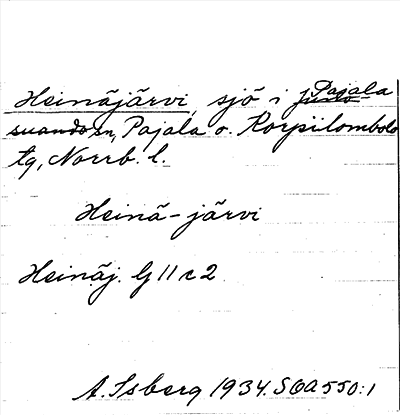 Heinäjärvi, sjö i Pajala
junosuando sn, Pajala o. Korpilombolo
tg, Norrb. l.
Heinä-järvi
Heinäj. Gj 11 c 2
A. Isberg 1934. SOA 550:1